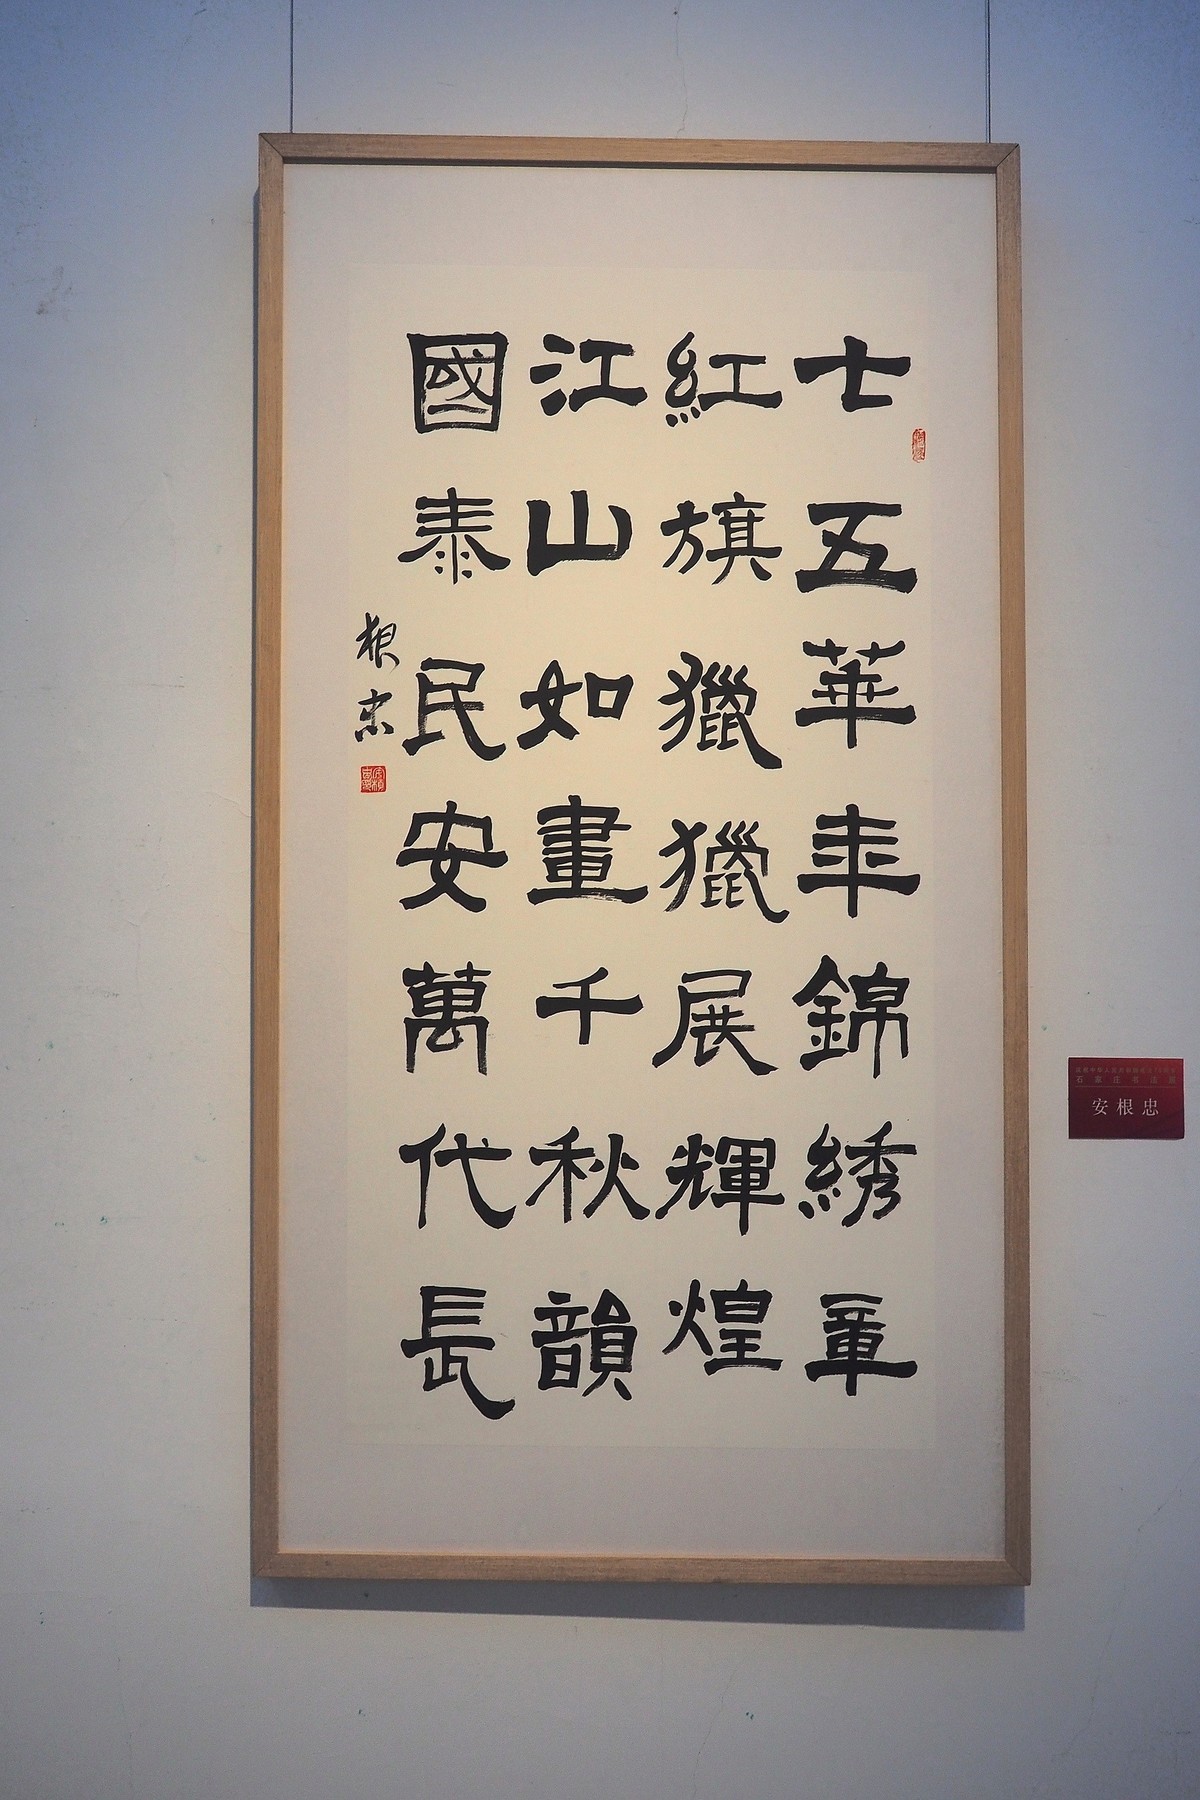 七五華年錦綉章
紅旗獵獵展輝煌
江山如畫千秋韻
國泰民安萬代長
根忠
石家庄书法展
安根忠